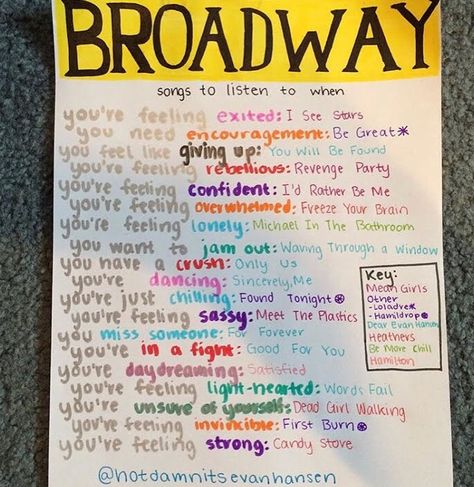 BROADWAY
songs to listen to when
you're feeling exited: I See Stars
you need encouragement: Be Great*
you feel like giving up: You Will Be Found
you're feeling rebellious: Revenge Party
you're feeling confident: I'd Rather Be Me
you're feeling overwhelmed: Freeze Your Brain
you're feeling lonely: Michael In The Bathroom
you want to jam out: Waving Through a Window
you have a crush: Only Us
you're dancing: Sincerely, Me
you're just chilling: Found Tonight*
you're feeling sassy: Meet The Plastics
you miss someone: For Forever
you're in a fight: Good For You
you're daydreaming: Satisfied
you're feeling light-hearted: Words Fail
you're unsure of yourself: Dead Girl Walking
you're feeling invincible: First Burn*
you're feeling strong: Candy Store
Key:
Mean Girls
Other
-Loladre*
-Hamildrop*
Dear Evan Hansen
Heathers
Be More Chill
Hamilton
@hotdamnitsevanhansen